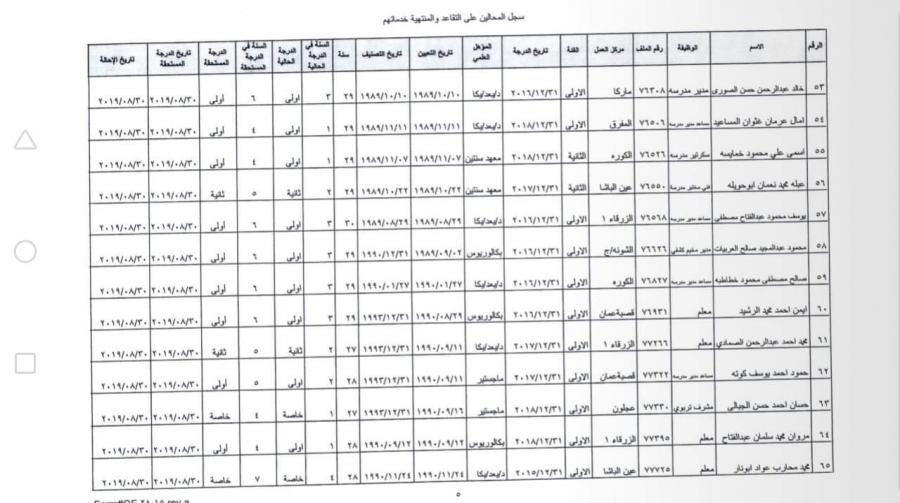 سجل المحالين على التقاعد والمنتهية خدماتهم
الرقم الاسم الوظيفة رقم الملف مركز العمل الفئة تاريخ الدرجة المؤهل العلمي تاريخ التعيين تاريخ التصنيف سنة السنة في الدرجة الحالية الدرجة الحالية السنة في الدرجة المستحقة الدرجة المستحقة تاريخ الدرجة المستحقة تاريخ الإحالة
٥٣ خالد عبدالرحمن حسن الصورى مدير مدرسه ٧٦٣٠٨ ماركا الاولى ٢٠١٦/١٢/٣١ د/بعد/بكا ١٩٨٩/١٠/١٠ ١٩٨٩/١٠/١٠ ٢٩ ٣ اولى ٦ أولى ٢٠١٩/٠٨/٣٠ ٢٠١٩/٠٨/٣٠
٥٤ امال عرمان غثوان المساعيد مساعد مدير مدرسة ٧٦٥٠٦ المفرق الاولى ٢٠١٨/١٢/٣١ د/بعد/بكا ١٩٨٩/١١/١١ ١٩٨٩/١١/١١ ٢٩ ١ اولى ٤ أولى ٢٠١٩/٠٨/٣٠ ٢٠١٩/٠٨/٣٠
٥٥ اسمى علي محمود خمايسه سكرتير مدرسة ٧٦٥٢٦ الكوره الثانية ٢٠١٨/١٢/٣١ معهد سنتين ١٩٨٩/١١/٠٧ ١٩٨٩/١١/٠٧ ٢٩ ١ اولى ٤ أولى ٢٠١٩/٠٨/٣٠ ٢٠١٩/٠٨/٣٠
٥٦ عبله محمد نعمان ابوحويله فني مختبر مدرسة ٧٦٥٥٠ عين الباشا الثانية ٢٠١٧/١٢/٣١ معهد سنتين ١٩٨٩/١٠/٢٢ ١٩٨٩/١٠/٢٢ ٢٩ ٢ ثانية ٥ ثانية ٢٠١٩/٠٨/٣٠ ٢٠١٩/٠٨/٣٠
٥٧ يوسف محمود عبدالفتاح مصطفى مساعد مدير مدرسة ٧٦٥٦٨ الزرقاء ١ الاولى ٢٠١٦/١٢/٣١ د/بعد/بكا ١٩٨٩/٠٨/٢٩ ١٩٨٩/٠٨/٢٩ ٣٠ ٣ اولى ٦ أولى ٢٠١٩/٠٨/٣٠ ٢٠١٩/٠٨/٣٠
٥٨ محمود عبدالمجيد صالح العربيات مدير مخيم كشفي ٧٦٦٢٦ الشونه/ج الاولى ٢٠١٦/١٢/٣١ بكالوريوس ١٩٨٩/٠٩/٠٢ ١٩٩٠/١٢/٣١ ٢٩ ٣ اولى ٦ أولى ٢٠١٩/٠٨/٣٠ ٢٠١٩/٠٨/٣٠
٥٩ صالح مصطفى محمود خطاطبه مساعد مدير مدرسة ٧٦٨٢٧ الكوره الاولى ٢٠١٦/١٢/٣١ د/بعد/بكا ١٩٩٠/٠١/٢٧ ١٩٩٠/٠١/٢٧ ٢٩ ٣ اولى ٦ أولى ٢٠١٩/٠٨/٣٠ ٢٠١٩/٠٨/٣٠
٦٠ ايمن احمد محمد الرشيد معلم ٧٦٩٣١ قصبةعمان الاولى ٢٠١٦/١٢/٣١ بكالوريوس ١٩٩٠/٠٨/٢٩ ١٩٩٣/١٢/٣١ ٢٩ ٣ اولى ٦ أولى ٢٠١٩/٠٨/٣٠ ٢٠١٩/٠٨/٣٠
٦١ محمد احمد عبدالرحمن الصمادي معلم ٧٧٢٦٦ الزرقاء ١ الاولى ٢٠١٧/١٢/٣١ د/بعد/بكا ١٩٩٠/٠٩/١١ ١٩٩٣/١٢/٣١ ٢٧ ٢ ثانية ٥ ثانية ٢٠١٩/٠٨/٣٠ ٢٠١٩/٠٨/٣٠
٦٢ حمود احمد يوسف كوته مساعد مدير مدرسة ٧٧٣٢٢ قصبةعمان الاولى ٢٠١٧/١٢/٣١ ماجستير ١٩٩٠/٠٩/١١ ١٩٩٣/١٢/٣١ ٢٨ ٢ اولى ٥ أولى ٢٠١٩/٠٨/٣٠ ٢٠١٩/٠٨/٣٠
٦٣ حسان احمد حسن الجبالي مشرف تربوي ٧٧٣٣٠ عجلون الاولى ٢٠١٨/١٢/٣١ ماجستير ١٩٩٠/٠٩/١٦ ١٩٩٣/١٢/٣١ ٢٧ ١ خاصة ٤ خاصة ٢٠١٩/٠٨/٣٠ ٢٠١٩/٠٨/٣٠
٦٤ مروان محمد سلمان عبدالفتاح معلم ٧٧٣٩٥ الزرقاء ١ الاولى ٢٠١٨/١٢/٣١ بكالوريوس ١٩٩٠/٠٩/١٢ ١٩٩٠/٠٩/١٢ ٢٨ ١ اولى ٤ أولى ٢٠١٩/٠٨/٣٠ ٢٠١٩/٠٨/٣٠
٦٥ محمد محارب عواد ابونار معلم ٧٧٧٢٥ عين الباشا الاولى ٢٠١٥/١٢/٣١ د/بعد/بكا ١٩٩٠/١١/٢٤ ١٩٩٠/١١/٢٤ ٢٨ ٤ خاصة ٧ خاصة ٢٠١٩/٠٨/٣٠ ٢٠١٩/٠٨/٣٠
٥